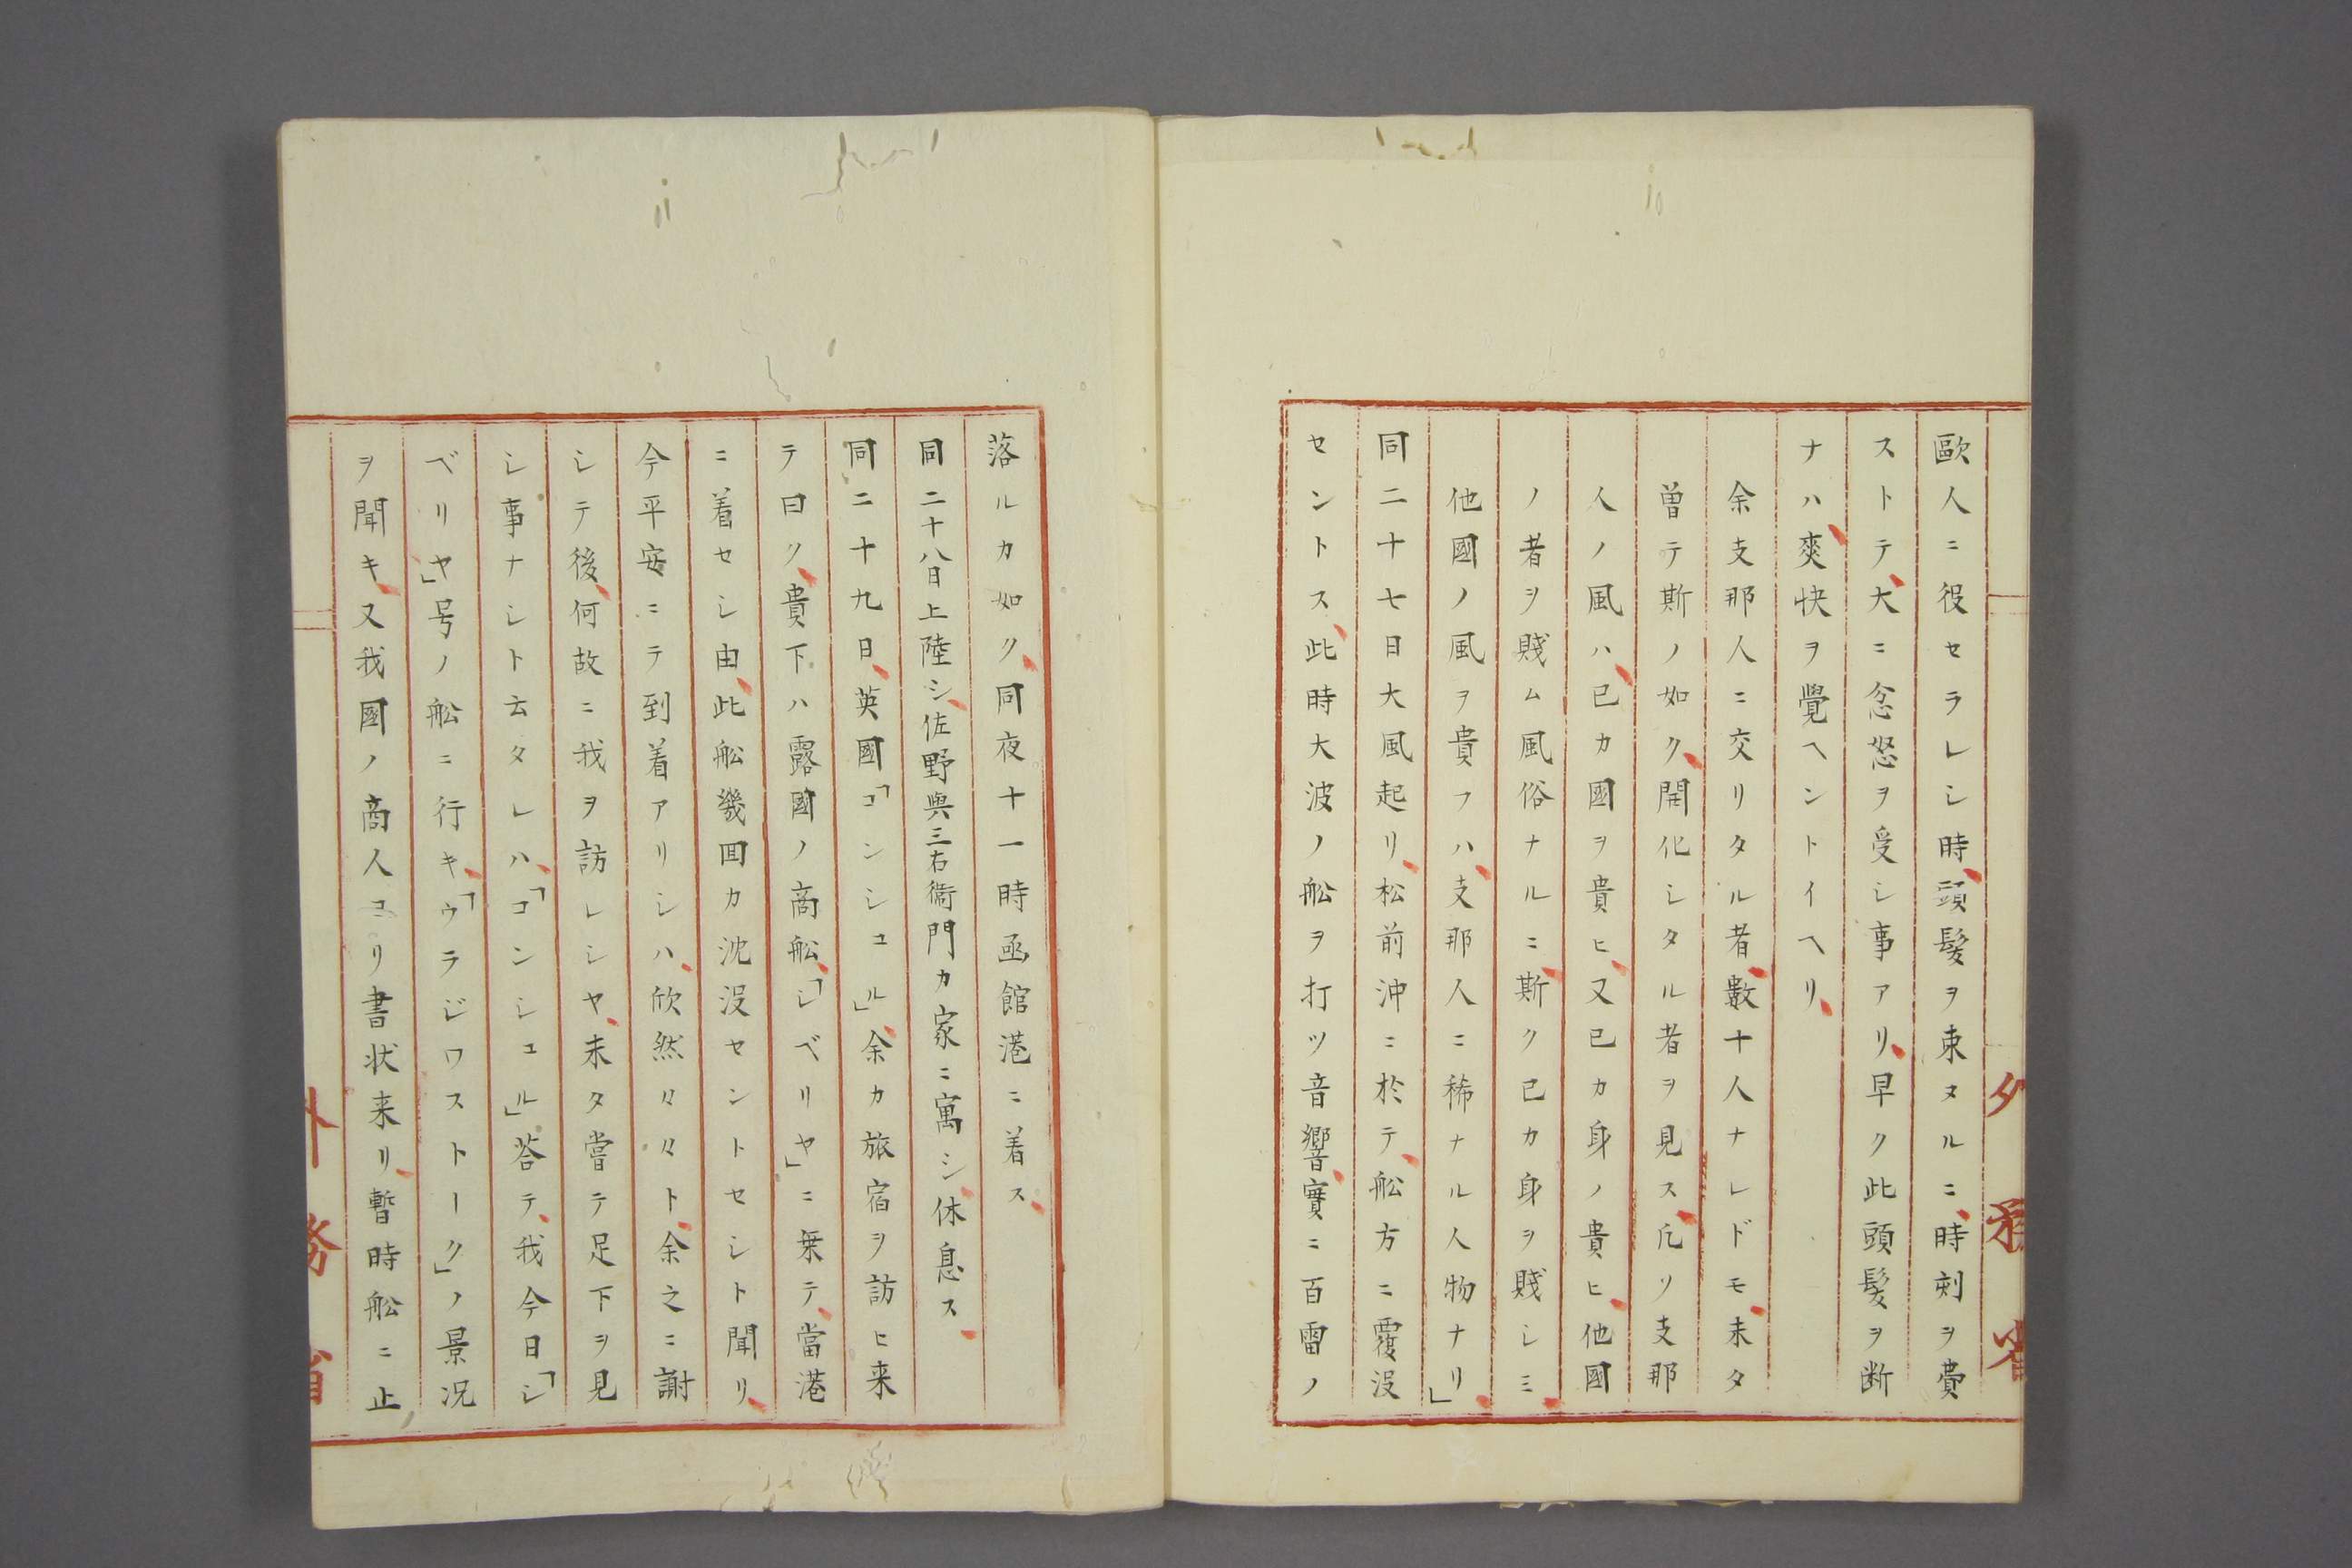 歐人ニ役セラレシ時、頭髮ヲ束ヌルニ、時刻ヲ費
ストテ、大ニ忿怒ヲ受シ事アリ、早ク此頭髮ヲ断
ナハ、爽快ヲ覺ヘントイヘリ、
余支那人ニ交リタル者、數十人ナレドモ、未タ
曽テ斯ノ如ク、開化シタル者ヲ見ス、凡ソ支那
人ノ風ハ、己カ國ヲ貴ヒ、又己カ身ノ貴ヒ、他國
ノ者ヲ賤ム風俗ナルニ、斯ク己カ身ヲ賤シミ、
他國ノ風ヲ貴フハ、支那人ニ稀ナル人物ナリ、」
同二十七日大風起リ、松前沖ニ於テ、舩方ニ覆没
セントス、此時大波ノ舩ヲ打ツ音響、實ニ百雷ノ
外務省
落ルカ如ク、同夜十一時函館港ニ着ス、
同二十八日上陸シ、佐野與三右衞門カ家ニ寓シ、休息ス、
同二十九日、英國「コンシユル」、余カ旅宿ヲ訪ヒ来
テ曰ク、貴下ハ露國ノ商舩、「シベリヤ」ニ乗テ、當港
ニ着セシ由、此舩幾回カ沈没セントセシト聞リ、
今平安ニテ到着アリシハ、欣然々々ト、余之ニ謝
シテ後、何故ニ我ヲ訪レシヤ、未タ嘗テ足下ヲ見
シ事ナシト云タレハ、「コンシユル」答テ、我今日「シ
ベリヤ」号ノ舩ニ行キ、「ウラジワストーク」ノ景况
ヲ聞キ、又我國ノ商人ヨリ書状来リ、暫時舩ニ止
外務省